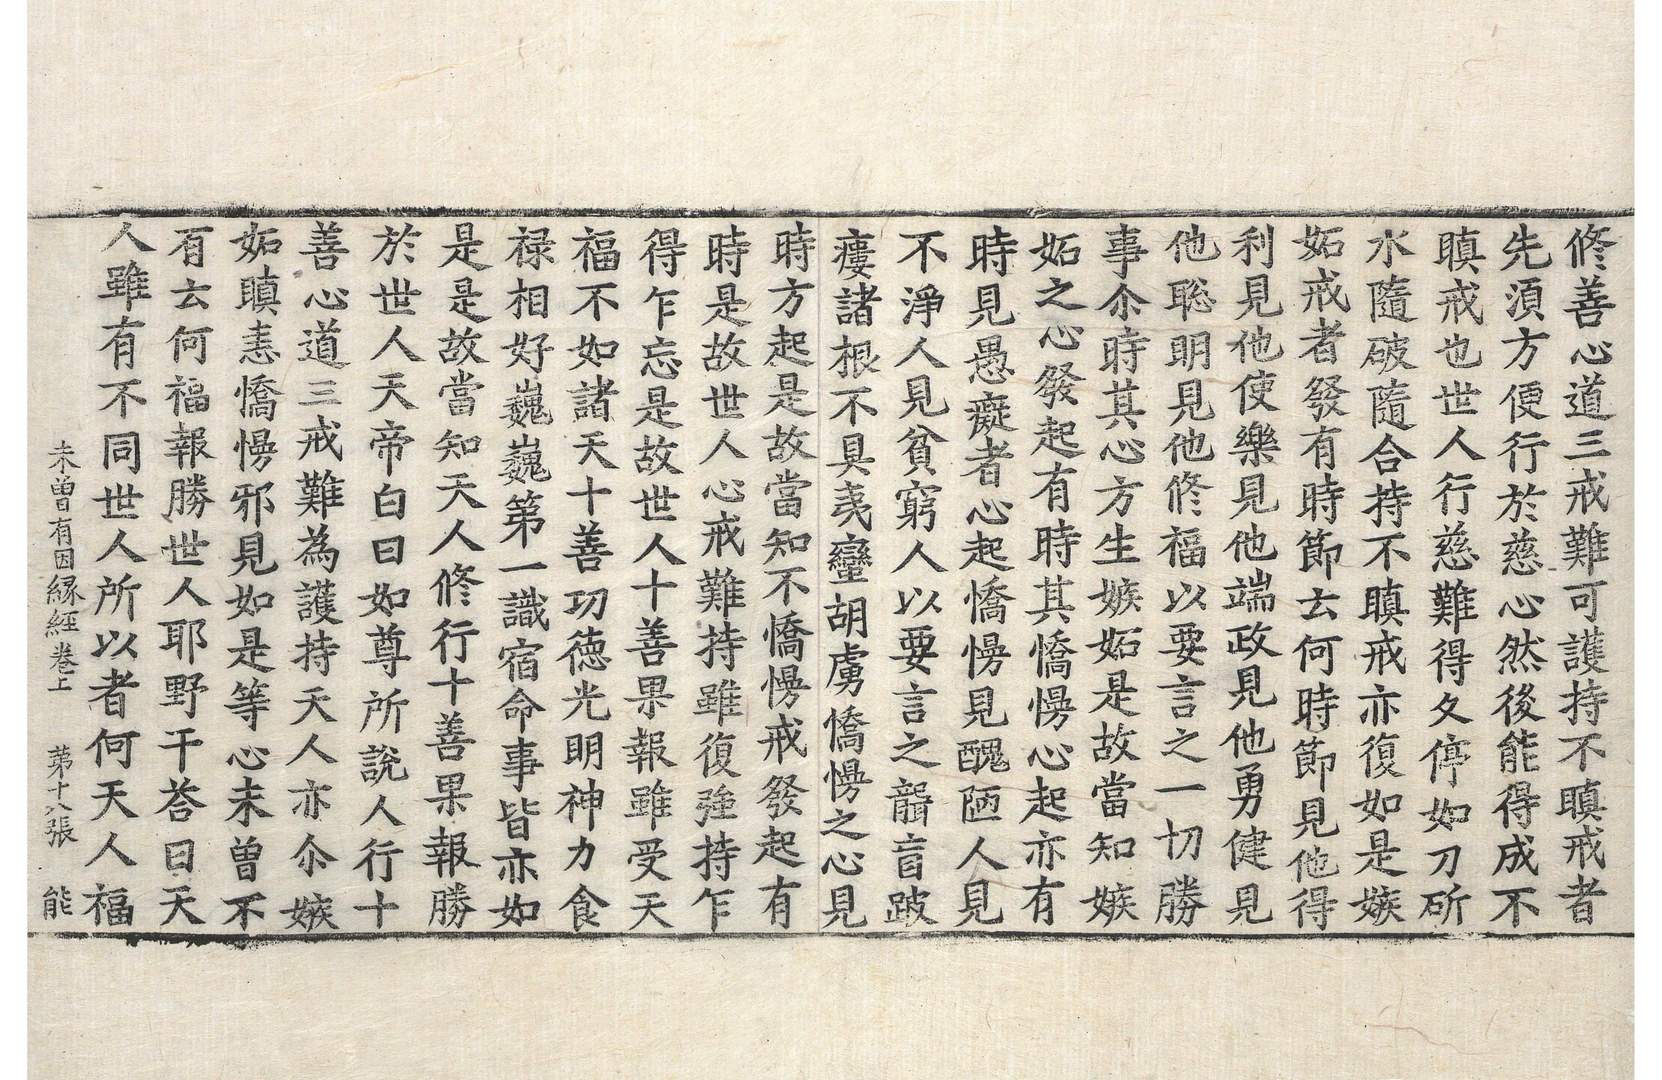 修善心道三戒難可護持不瞋戒者
先湏方便行於慈心然後能得成不
瞋戒也世人行慈難得久停如刀斫
水隨破隨合持不瞋戒亦復如是嫉
妬戒者發有時節云何時節見他得
利見他使樂見他端政見他勇健見
他聡明見他修福以要言之一切勝
事尒時其心方生嫉妬是故當知嫉
妬之心發起有時其憍慢心起亦有
時見愚癡者心起憍慢見醜陋人見
不淨人見貧窮人以要言之聾盲跛
瘻諸根不具夷蠻胡虜憍慢之心見
時方起是故當知不憍慢戒發起有
時是故世人心戒難持雖復強持乍
得乍忘是故世人十善果報雖受天
福不如諸天十善功徳光明神力食
禄相好巍巍第一識宿命事皆亦如
是是故當知天人修行十善果報勝
於世人天帝白曰如尊所說人行十
善心道三戒難為護持天人亦尒嫉
妬瞋恚憍慢邪見如是等心未曾不
有云何福報勝世人耶野干荅曰天
人雖有不同世人所以者何天人福
未曾有因縁經卷上 第十八張 能